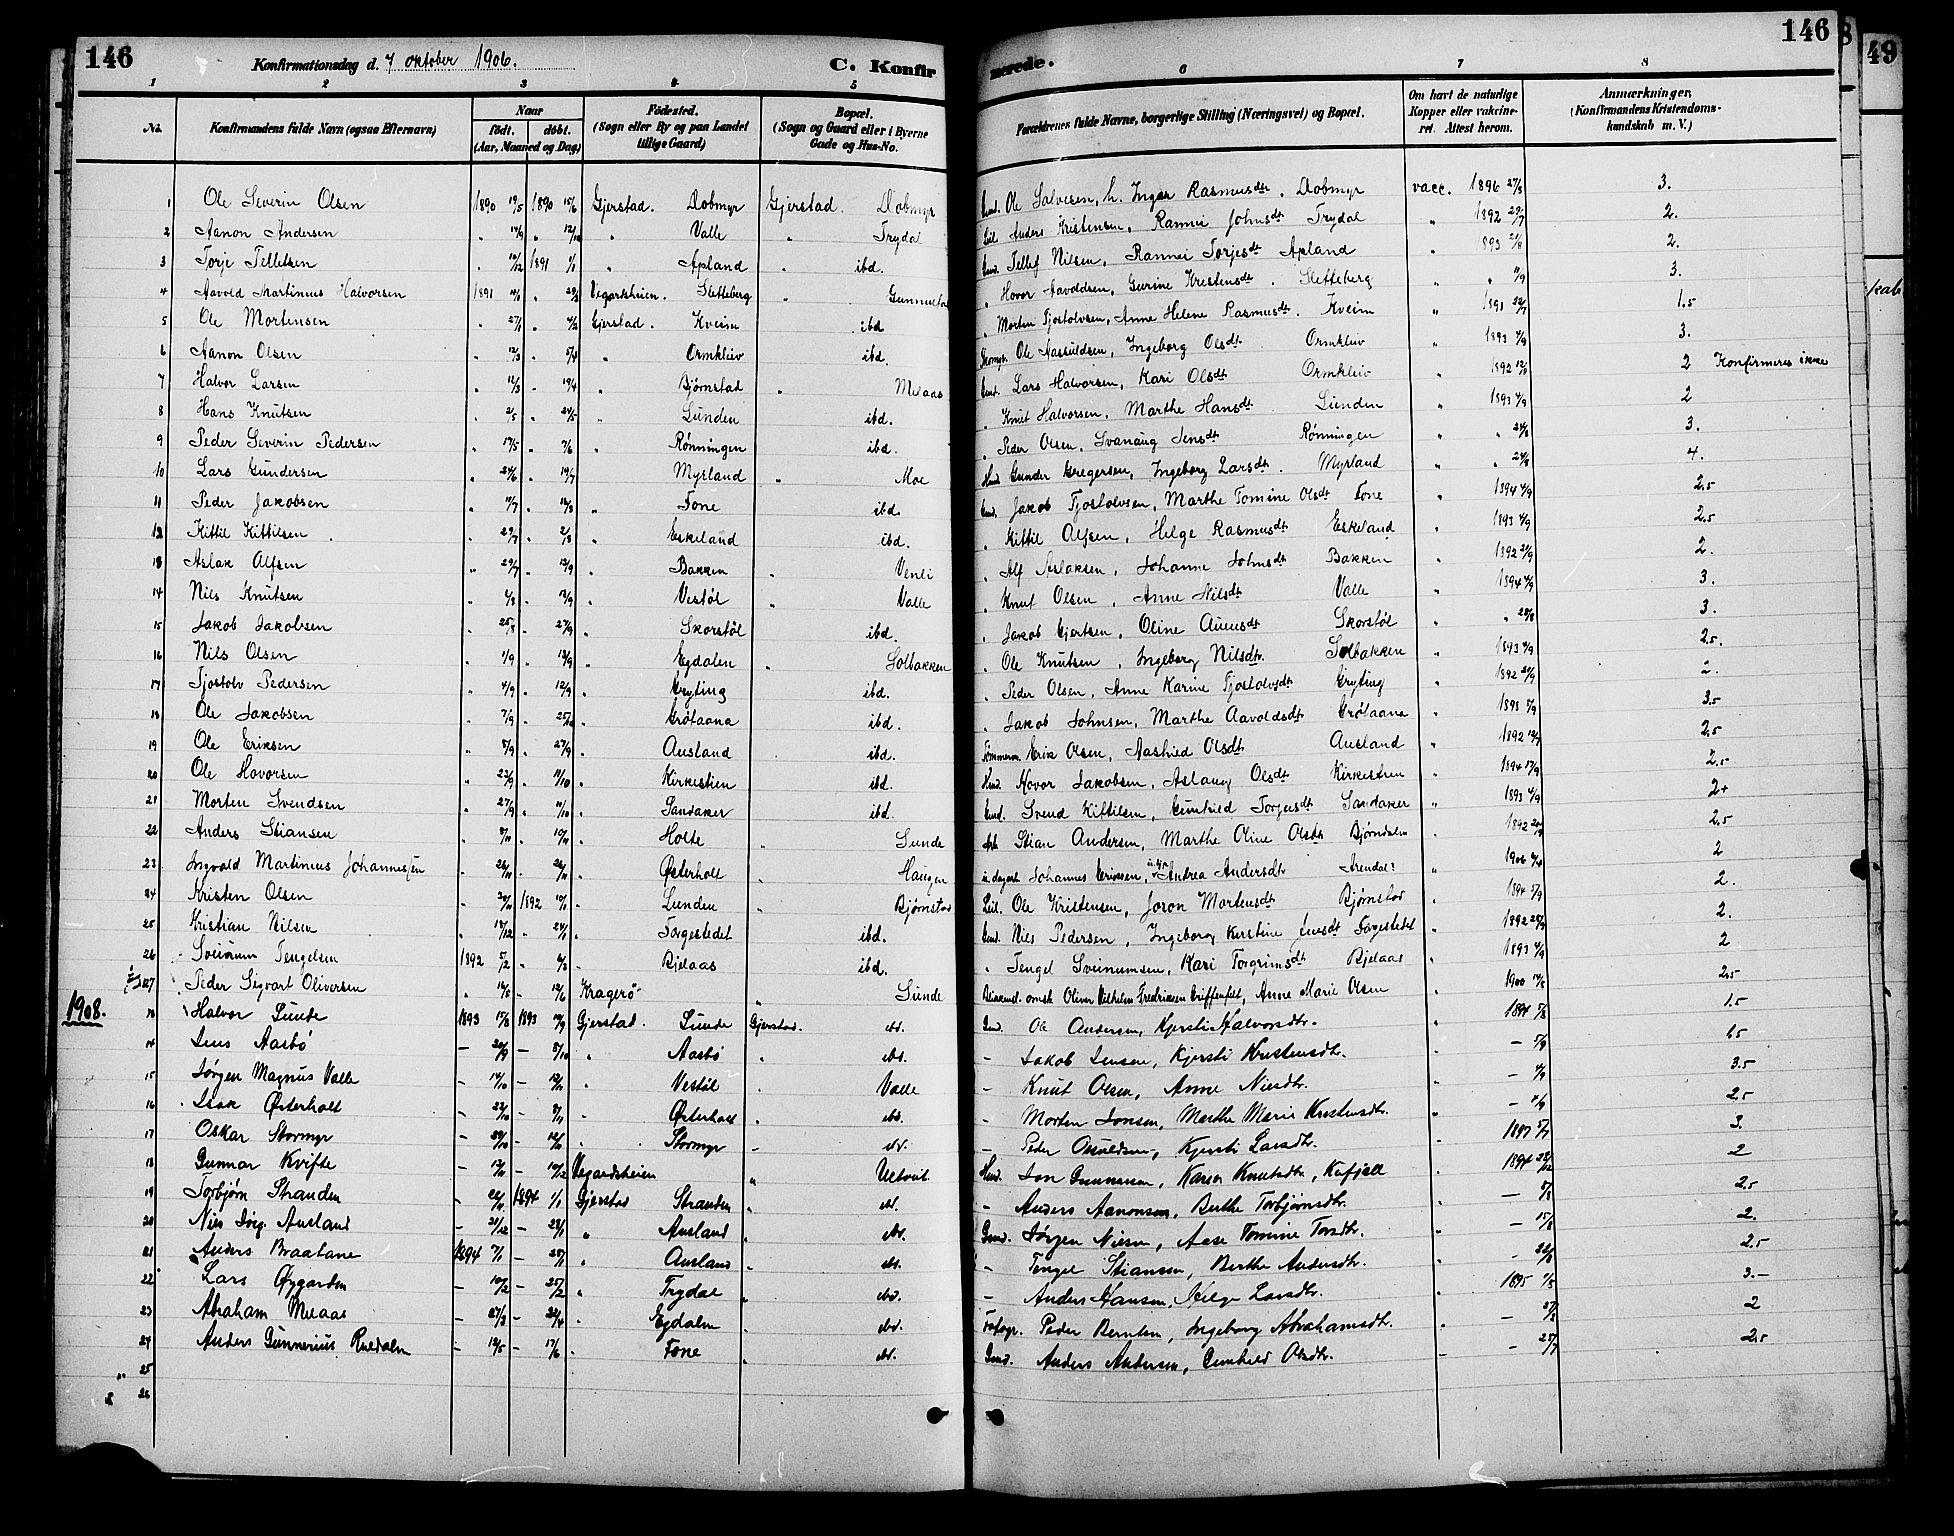 146
146
49
Konfirmationsdag d. 7 oktober 1906.
C. Konfirmerede.
1 2 3 4 5 6 7 8
No. Konfirmandens fulde Navn (ogsaa Efternavn) Naar født. døbt. (Aar, Maaned og Dag) Fødested. (Sogn eller By og paa Landet tillige Gaard) Bopæl. (Sogn og Gaard eller i Byerne Gade og Hus-No. Forældrenes fulde Navne, borgerlige Stilling (Næringsvei) og Bopæl. Om havt de naturlige Kopper eller vakcineret. Attest herom. Anmærkninger, (Konfirmandens Kristendomskundskab m. V.)
1 Ole Severin Olsen 1890 19/5 1890 15/6 Gjerstad. Dobmyr Gjerstad. Dobmyr Gmd. Ole Salvesen, h. Inger Rasmusdtr. Dobmyr vacc. 1896 27/8 3.
2 Aanon Andersen " 14/9 " 12/10 " Valle " Trydal Leil. Anders Kristensen, Rannei Johnsdt Trydal " 1892 29/7 2.
3 Torje Tellefsen " 10/12 1891 1/1 " Apland " ibd. Gmd. Tellef Nilsen, Rannei Torjesdt Apland " 1893 21/8 2.
4 Aavold Martinius Halvorsen 1891 " Vegardsheien. Sletteberg " " Hovor Aavoldsen, Gurine Kristensdt. Sletteberg " " 11/9 3.
5 Ole Mortensen " 27/1 " 4/2 Gjerstad. Kveim ibd " Morten Tjostolvsen, Anne Helene Rasmusdt. Kveim " 1893 1.5
6 Aanon Olsen " 12/3 " 5/4 " Ormkleiv ibd. Ole Aasuldsen, Ingeborg Olsdt. Ormkleiv " 1893 4/9 3.
7 Halvor Larsen " 11/3 " 19/4 " Bjørnstad " Melaas Gmd. Lars Halvorsen, Kari Olsdt Ormkleiv " 1892 12/8 2 Konfirmeres ikke
8 Hans Knutsen " 2/5 " 24/5 " Lunden ibd. " Knut Halvorsen, Marthe Hansdt Lunden " 1893 4/9 2
9 Peder Severin Pedersen " 17/5 " 7/6 " Rønningen ibd. " Peder Olsen, Svanaug Jensdt Rønningen " " 24/8 3.
10 Lars Gundersen " 24/6 " 19/7 " Myrland " Moe Hmd Gunder Gregersen, Ingeborg Larsdt. Myrland " " 24/8 4.
11 Peder Jakobsen " " " Fone ibd. Gmd. Jakob Tjostolvsen, Marthe Tomine Olsdt Fone " 1894 4/9 2.5
12 Kittil Kittilsen " 29/7 " 2/8 " Eskeland ibd. " Kittil Olsen, Helge Rasmusdt Eskeland " 1893 4/9 2.5
13 Aslak Alfsen " 29/7 " 13/9 " Bakken " Venli " Alf Aslaksen, Johanne Johnsdt Bakken " 1892 21/9 2.
14 Nils Knutsen " " 13/9 " Vestøl " Valle " Knut Olsen, Anne Nilsdt Valle " 1894 4/9 3.
15 Jakob Jakobsen " 25/8 " 27/9 " Skorstøl ibd. " Jakob Gjertsen, Oline Auensdt Skorstøl " " 28/8 3.
16 Nils Olsen " 1/9 " 13/9 " Egdalen " Solbakken " Ole Knutsen, Ingeborg Nilsdt. Solbakken " 1893 4/9 2.5.
17 Tjostolv Pedersen " 4/9 " 12/9 " Gryting ibd. " Peder Olsen, Anne Karine Tjostolvsdt Gryting " 1892 2.
18 Ole Jakobsen " 7/9 " 25/10 " Grøtaana ibd. " Jakob Johnsen, Marthe Aavoldsdt Grøtaane " 1893 5/9 3.5
19 Ole Eriksen " 8/9 " 27/9 " Ausland ibd. Tømmerm. Erik Olsen, Aashild Olsdt Ausland " 1892 2.5
20 Ole Hovorsen " 23/9 " 11/10 " Kirkestien ibd. Hmd. Hovor Jakobsen, Aslaug Olsdt Kirkestien " 1894 17/9 2.5
21 Morten Svendsen " 27/9 " 11/10 " Sandaker ibd. Gmd. Svend Kittilsen, Gunhild Torgensdt Sandaker " 1893 4/9 2+
22 Anders Stiansen " 8/11 " " Holte " Sunde Stian Andersen, Marthe Oline Olsdt Bjørndalen " 1892 2.5
23 Ingvald Martinius Johannessen " 26/11 " " Østerholt " Haugen Johannes Eriksen, Andrea Andersdt Arendal? " 1906 2
24 Kristen Olsen " 1892 " Lunden " Bjørnstad Leil. Ole Kristensen, Joron Mortensdt Bjørnstad " 1894 5/9 2.
25 Kristian Nilsen " 18/12 " 24/1 " Torgestedet ibd. Gmd. Nils Pedersen, Ingeborg Kirstine Jensdt Torgestedet " 1892 2.
26 Sveinum Tengelsen 1892 5/2 " 6/3 " Bjelaas ibd. " Tengel Sveinumsen, Kari Torgrimsdt Bjelaas " 1893 4/9 2
27 Peder Sigvart Oliversen " " 12/6 Kragerö " Sunde Oliver Vilhelm Fredriksen Griffenfelt, Anne Marie Olsen 1900 2.5
1908.
13 Halvor Sunde 1893 1893 Gjerstad. Sunde Gjerstad. ibd. Gmd. Ole Andersen, Kjersti Halvorsdtr. " 1894 5/8 1.5
14 Jens Aasbö — 20/9 — 8/10 " Aasbö " ibd. — Jakob Jensen, Kjersti Kristensdtr. " — 5/9 1.5
15 Jørgen Magnus Valle — 14/10 — " Vestøl " Valle — Knut Olsen, Anne Nilsdtr. " — 4/9 3.5
16 Isak Østerholt — 22/10 — " Østerholt " ibd. — Morten Jonsen, Marthe Marie Kristensdtr. " — 2.5
17 Oskar Stormyr — — " Stormyr — ibd. — Peder Osuldsen, Kjersti Larsdtr. " 1897 3.
18 Gunnar Kvifte — — 10/12 Vegardsheien " Hmd. Jon Gunnarsen, Karen Knutsdtr, " 1894 2
19 Torbjørn Stranden — 1894 1/1 Gjerstad Stranden " ibd. — Anders Aanonsen, Berthe Torbjørnsdtr. " — 2.5
20 Nils Jörg. Ausland — 21/12 — 28/1 " Ausland " ibd. Gmd. Jörgen Nilsen, Aase Tomine Torsdtr. " — 15/8 2.
21 Anders Braatane 1894 — " Ausland " ibd. — Tengel Stiansen, Berthe Andersdtr. " — 2.5
22 Lars Øygarden — 10/2 — 25/2 " Trydal " ibd. — Anders Hansen, Helge Larsdtr. " 1895 3.—
23 Abraham Melaas — 27/3 — 22/4 " Egdalen " ibd. Fotogr. Peder Berntsen, Ingeborg Abrahamsdtr. " — 2
24 Anders Gunnerius Ruedalen — 12/5 — 17/6 " Fone " ibd. Gmd. Anders Andersen, Gunhild Olsdtr. — — 25/7 2.5
25
26